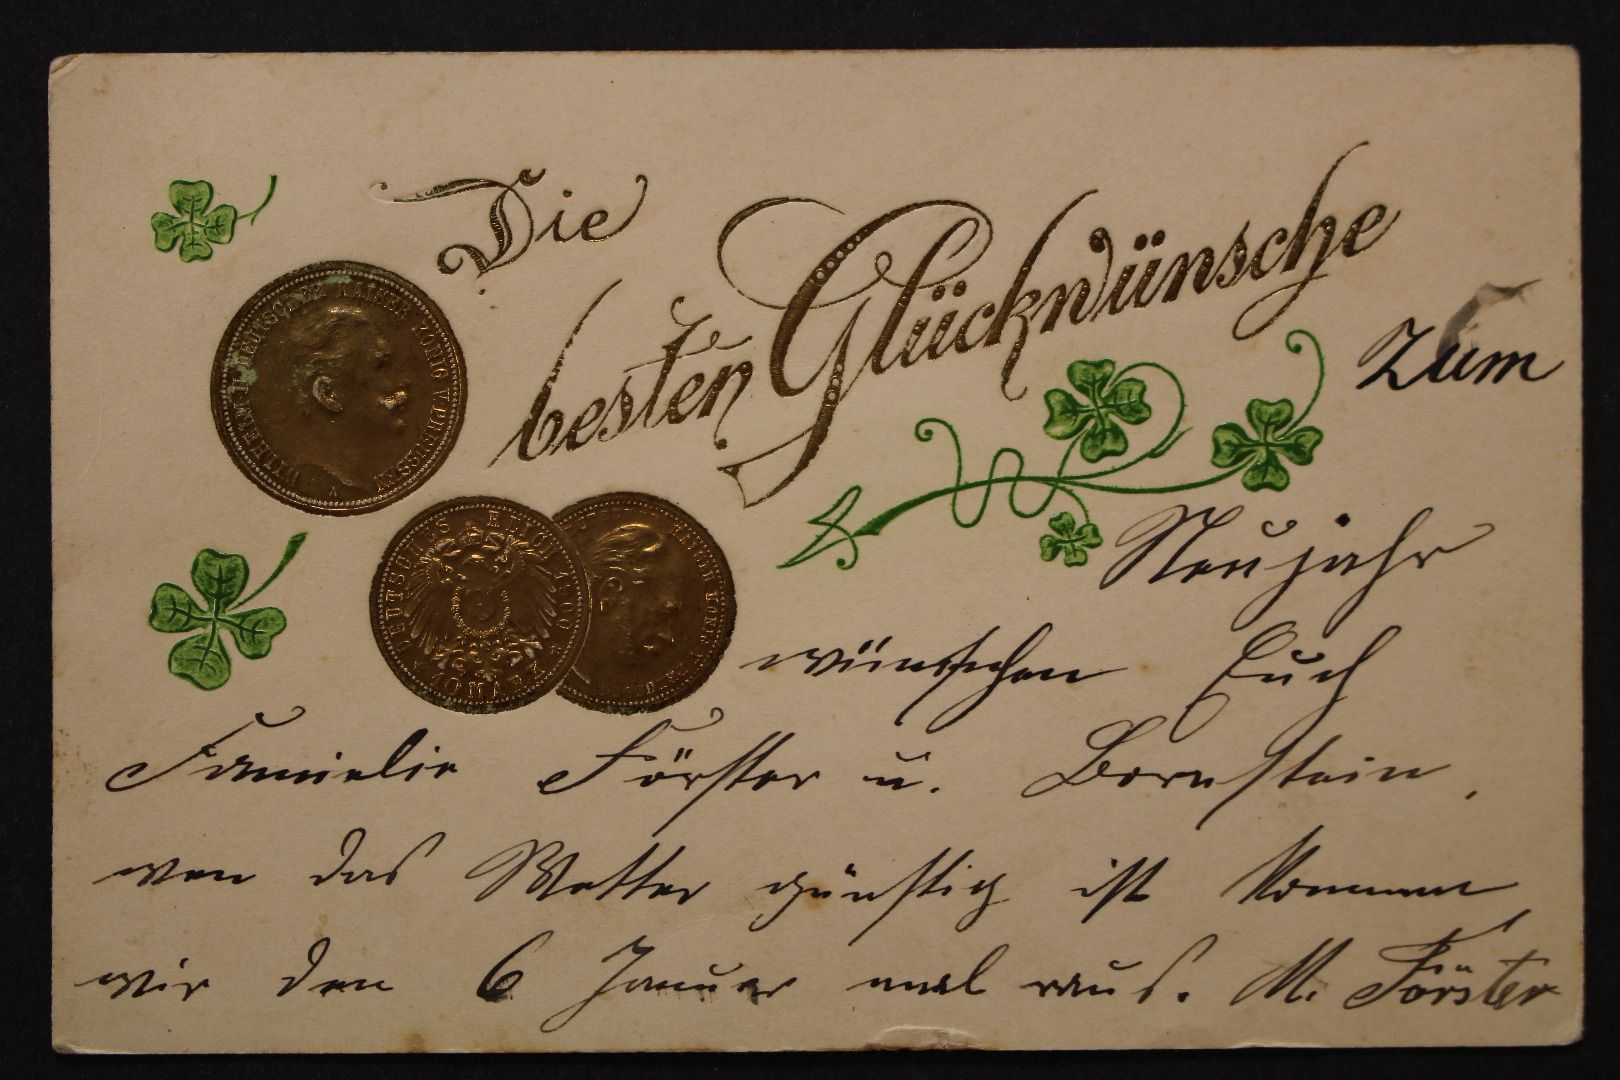 Die
besten Glückwünsche
zum
Neujahr
wünschen Euch
Familie Förster u. Bornstein,
wen das Wetter günstig ist kommen
wir den 6 Januar mal raus. M. Förster
WILHELM II DEUTSCHER KAISER KÖNIG V. PREUSSEN
A
DEUTSCHES REICH 1900
10 MARK